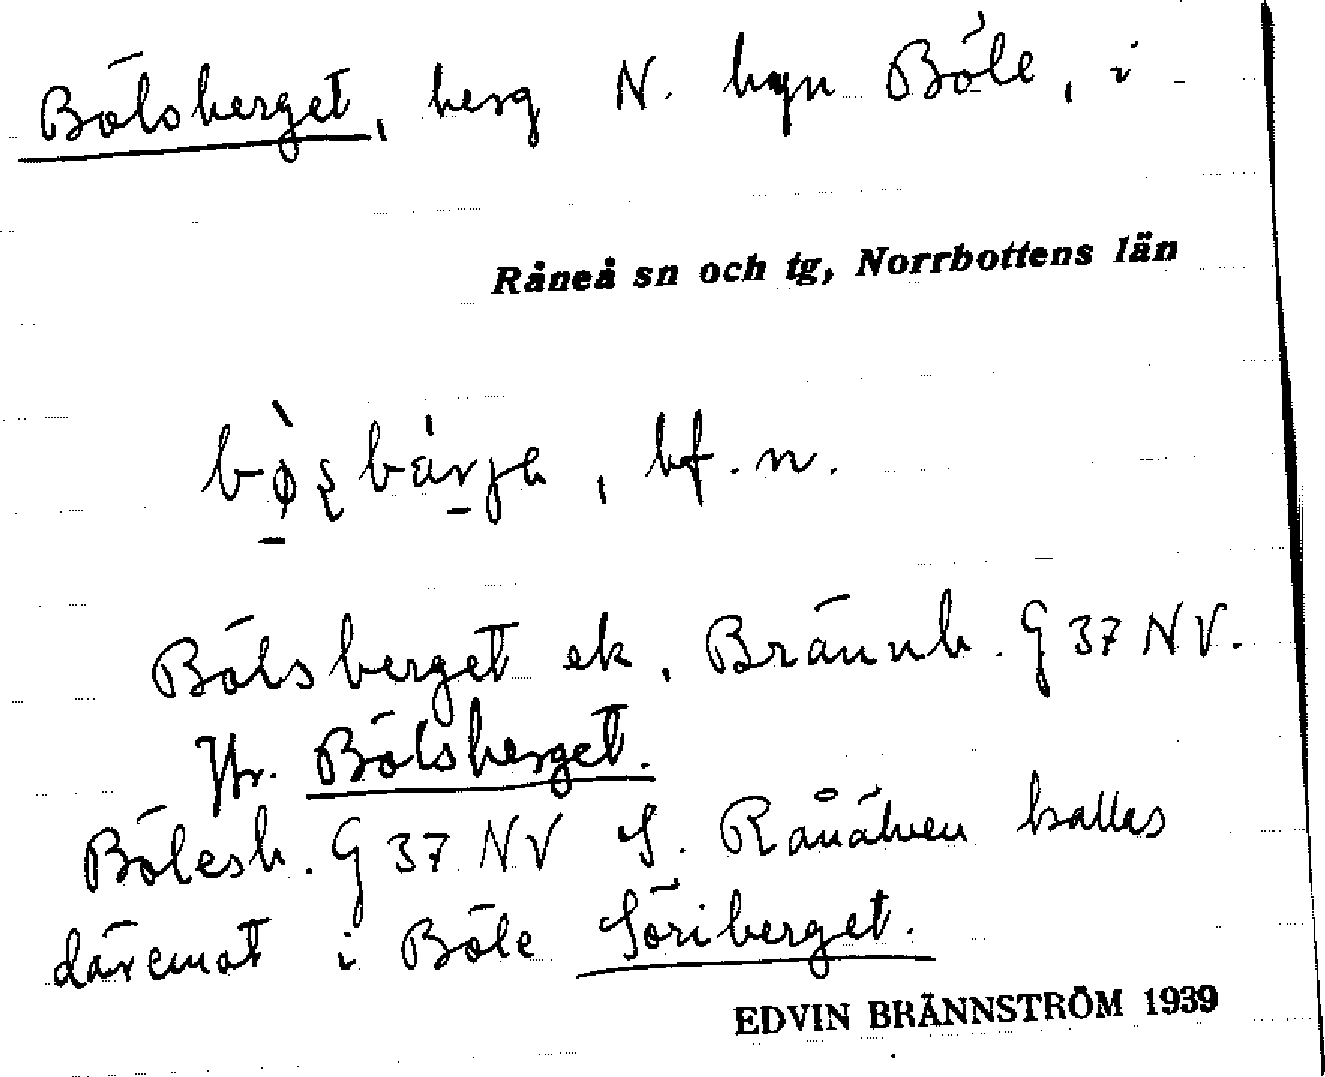 Bölsberget, berg N. byn Böle, i
Råneå sn och tg, Norrbottens län
, bf. n.
Bölsberget ek, Brännb. G 37 NV.
Ytr. Bölsberget.
Bölesb. G 37 NV S. Råneälven kallas
däremot i Böle Söriberget.
EDVIN BRÄNNSTRÖM 1939